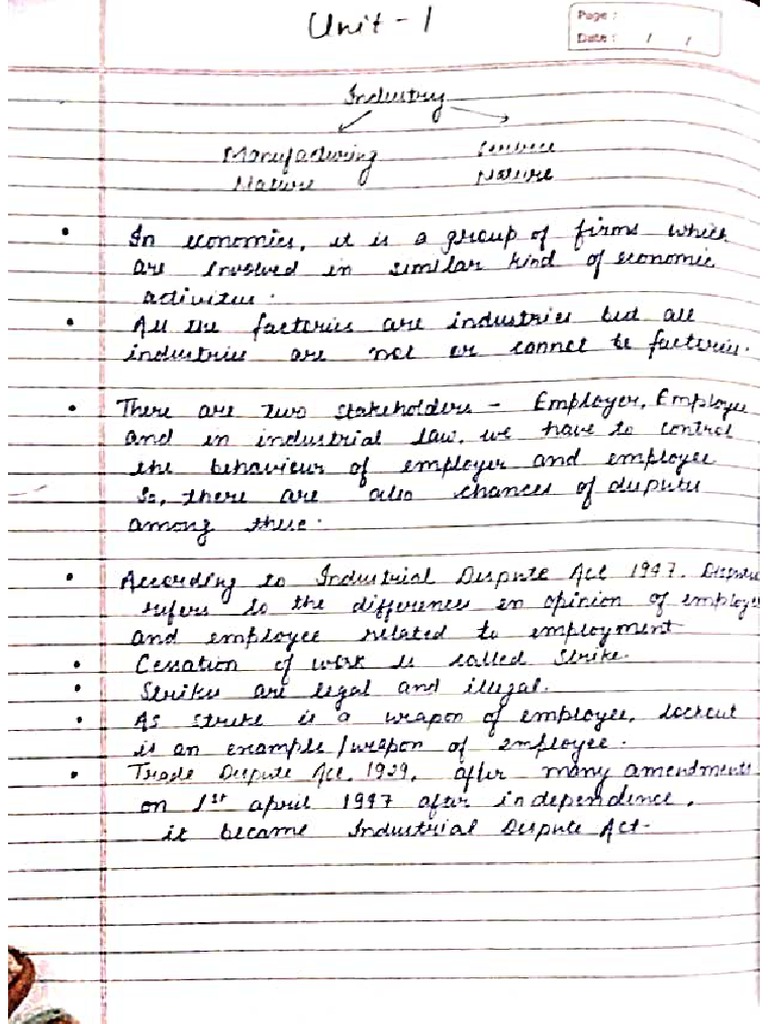 Unit - 1
Page :
Date : / /
Industry
Manufacturing Service
Nature Nature
• In economics, it is a group of firms which
are involved in similar kind of economic
activities.
• All the factories are industries but all
industries are not or cannot be factories.
• There are two stakeholders - Employer, Employee
and in industrial law, we have to control
the behaviour of employer and employee
So, there are also chances of dispute
among these.
• According to Industrial Dispute Act 1947. Dispute
refers to the difference in opinion of employer
and employee related to employment
• Cessation of work is called Strike.
• Strikes are legal and illegal.
• As strike is a weapon of employee, lockout
is an example/weapon of employee.
• Trade Dispute Act, 1929, after many amendments
on 1st april 1947 after independence,
it became Industrial Dispute Act-